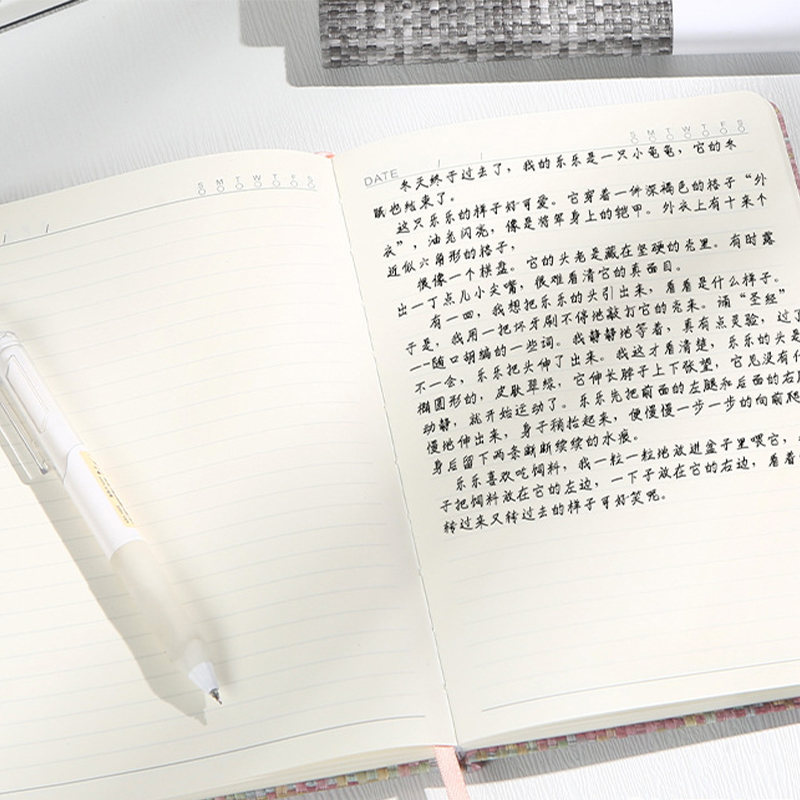 S M T W T F S
/ /
S M T W T F S
DATE / /
冬天终于过去了，我的乐乐是一只小龟龟，它的冬
眠也结束了。
这只乐乐的样子好可爱。它穿着一件深褐色的格子“外
衣”，油光闪亮，像是将军身上的铠甲。外衣上有十来个
近似六角形的格子，
很像一个棋盘。它的头老是藏在坚硬的壳里。有时露
出一丁点儿小尖嘴，很难看清它的真面目。
有一回，我想把乐乐的头引出来，看看是什么样子。
于是，我用一把坏牙刷不停地敲打它的壳来。诵“圣经”
--随口胡编的一些词。我静静地等着，真有点灵验，过了
不一会，乐乐把头伸了出来。我这才看清楚，乐乐的头是
椭圆形的，皮肤翠绿，它伸长脖子上下张望，它见没有什
动静，就开始运动了。乐乐先把前面的左腿和后面的右腿
慢地伸出来，身子稍抬起来，便慢慢一步一步的向前爬
身后留下两条断断续续的水痕。
乐乐喜欢吃饲料，我一粒一粒地放进盆子里喂它，
子把饲料放在它的左边，一下子放在它的右边，看着
转过来又转过去的样子可好笑呢。